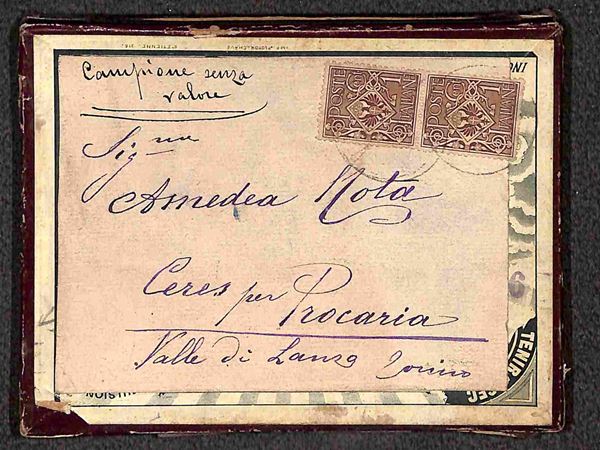 Campione senza
valore
POSTE ITALIANE
POSTE ITALIANE
Sig.na
Amedea Nota
Ceres per Procaria
Valle di Lanzo Torino
TENIR
SEC